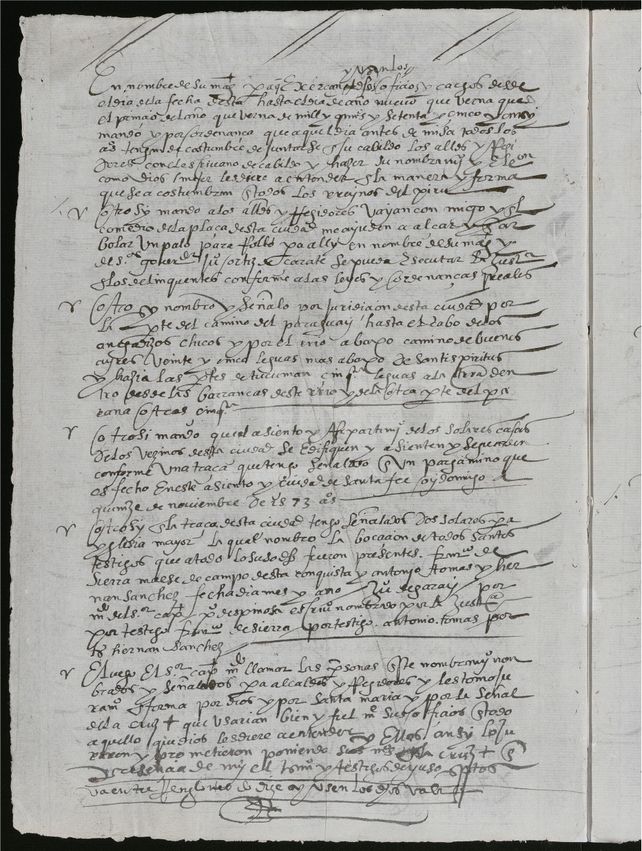 y usen los
En nombre de su mag. pa q exercan los dhos oficios y cargos desde
el dia de la fecha desta hasta el dia de año nuevo que verna que es
el primero del año que verna de mill y qinios y setenta y cinco y ansy
mando y por ordenança que aquel dia antes de misa todos los
as tengan de costumbre de juntarse en su cabildo los alldes y Regi
dores con el escrivano de cabildo y hazer su nombramyo y elecion
como dios mejor les diere a entender en la manera y forma
que se acostumbra en todos los Reynos del piru
otrosy mando a los alldes y Regidores vayan con migo y en el
comedio de la plaça desta ciudad me ayuden a alçar y enar
bolar un palo para Rollo pa ally en nombre de su mag. y
del sor governor Ju ortiz de çarate se pueda executar la justa
en los delinquentes conforme a las leyes y ordenanças Reales
otrosy nombro y señalo por juridicion desta ciudad por
la pte del camino del paraguay hasta el cabo de los
anegadizos chicos y por el rio abaxo camino de buenos
ayres veinte y cinco leguas mas abaxo de santispiritus
y hazia las ptes de tucuman cinqta leguas a la tierra den
tro desde las barrancas deste rio y de la otra pte del pa
rana otras cinqta
otrosi mando quel asiento y Repartimyo de los solares casas
de los vezinos desta ciudad se edifiquen y asienten y se
conforme una traça que tengo señalada en un pargamino que
es fecho en este asiento y ciudad de santa fee oy domingo a
quinze de noviembre de 1573 as
otrosy en la traça desta ciudad tengo señalados dos solares pa
yglesia mayor la qual nombro la bocacion de todos santos
testigos que a todo lo suso dho fueron presentes franco de
sierra maese de campo desta conquista y antonio tomas y her
nan sanchez fecha dia mes y año Ju de garay por
mdo del sor capn po despinosa escrivo nombrado por la justa
por testigo franco de sierra por testigo antonio tomas por
to hernan sanchez
E luego El sor capn mdo llamar las psonas en este nombramyo non
brados y señalados pa alcaldes y Regidores y les tomo ju
ramo en forma por dios y por santa maria y por la señal
de la cruz + que usarian bien y fielmte sus oficios en todo
aquello que dios les diere a entender y Ellos ansy lo ju
raron y prometieron poniendo sus manos en la cruz + en
presencia de my el escrivo y testigos de yuso escritos
va entre Renglones o dize y usen los dhos vala